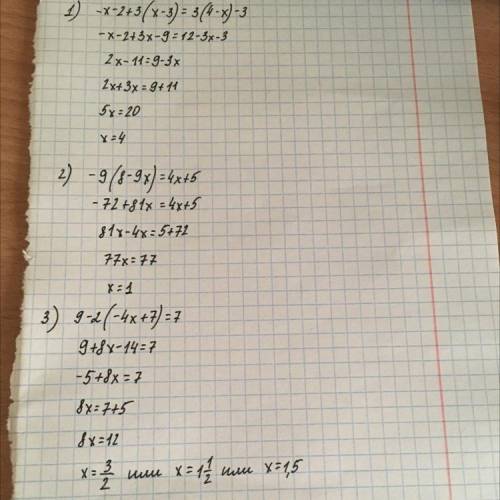 1) -x-2+3(x-3)=3(4-x)-3
-x-2+3x-9=12-3x-3
2x-11=9-3x
2x+3x=9+11
5x=20
x=4
2) -9(8-9x)=4x+5
-72+81x=4x+5
81x-4x=5+72
77x=77
x=1
3) 9-2(-4x+7)=7
9+8x-14=7
-5+8x=7
8x=7+5
8x=12
x=3/2 или x=1 1/2 или x=1,5